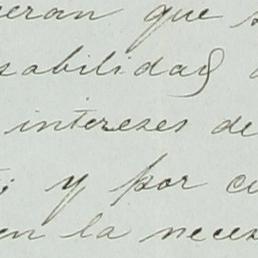 eran que s
sabilidad
intereses de
y por cu
en la neces